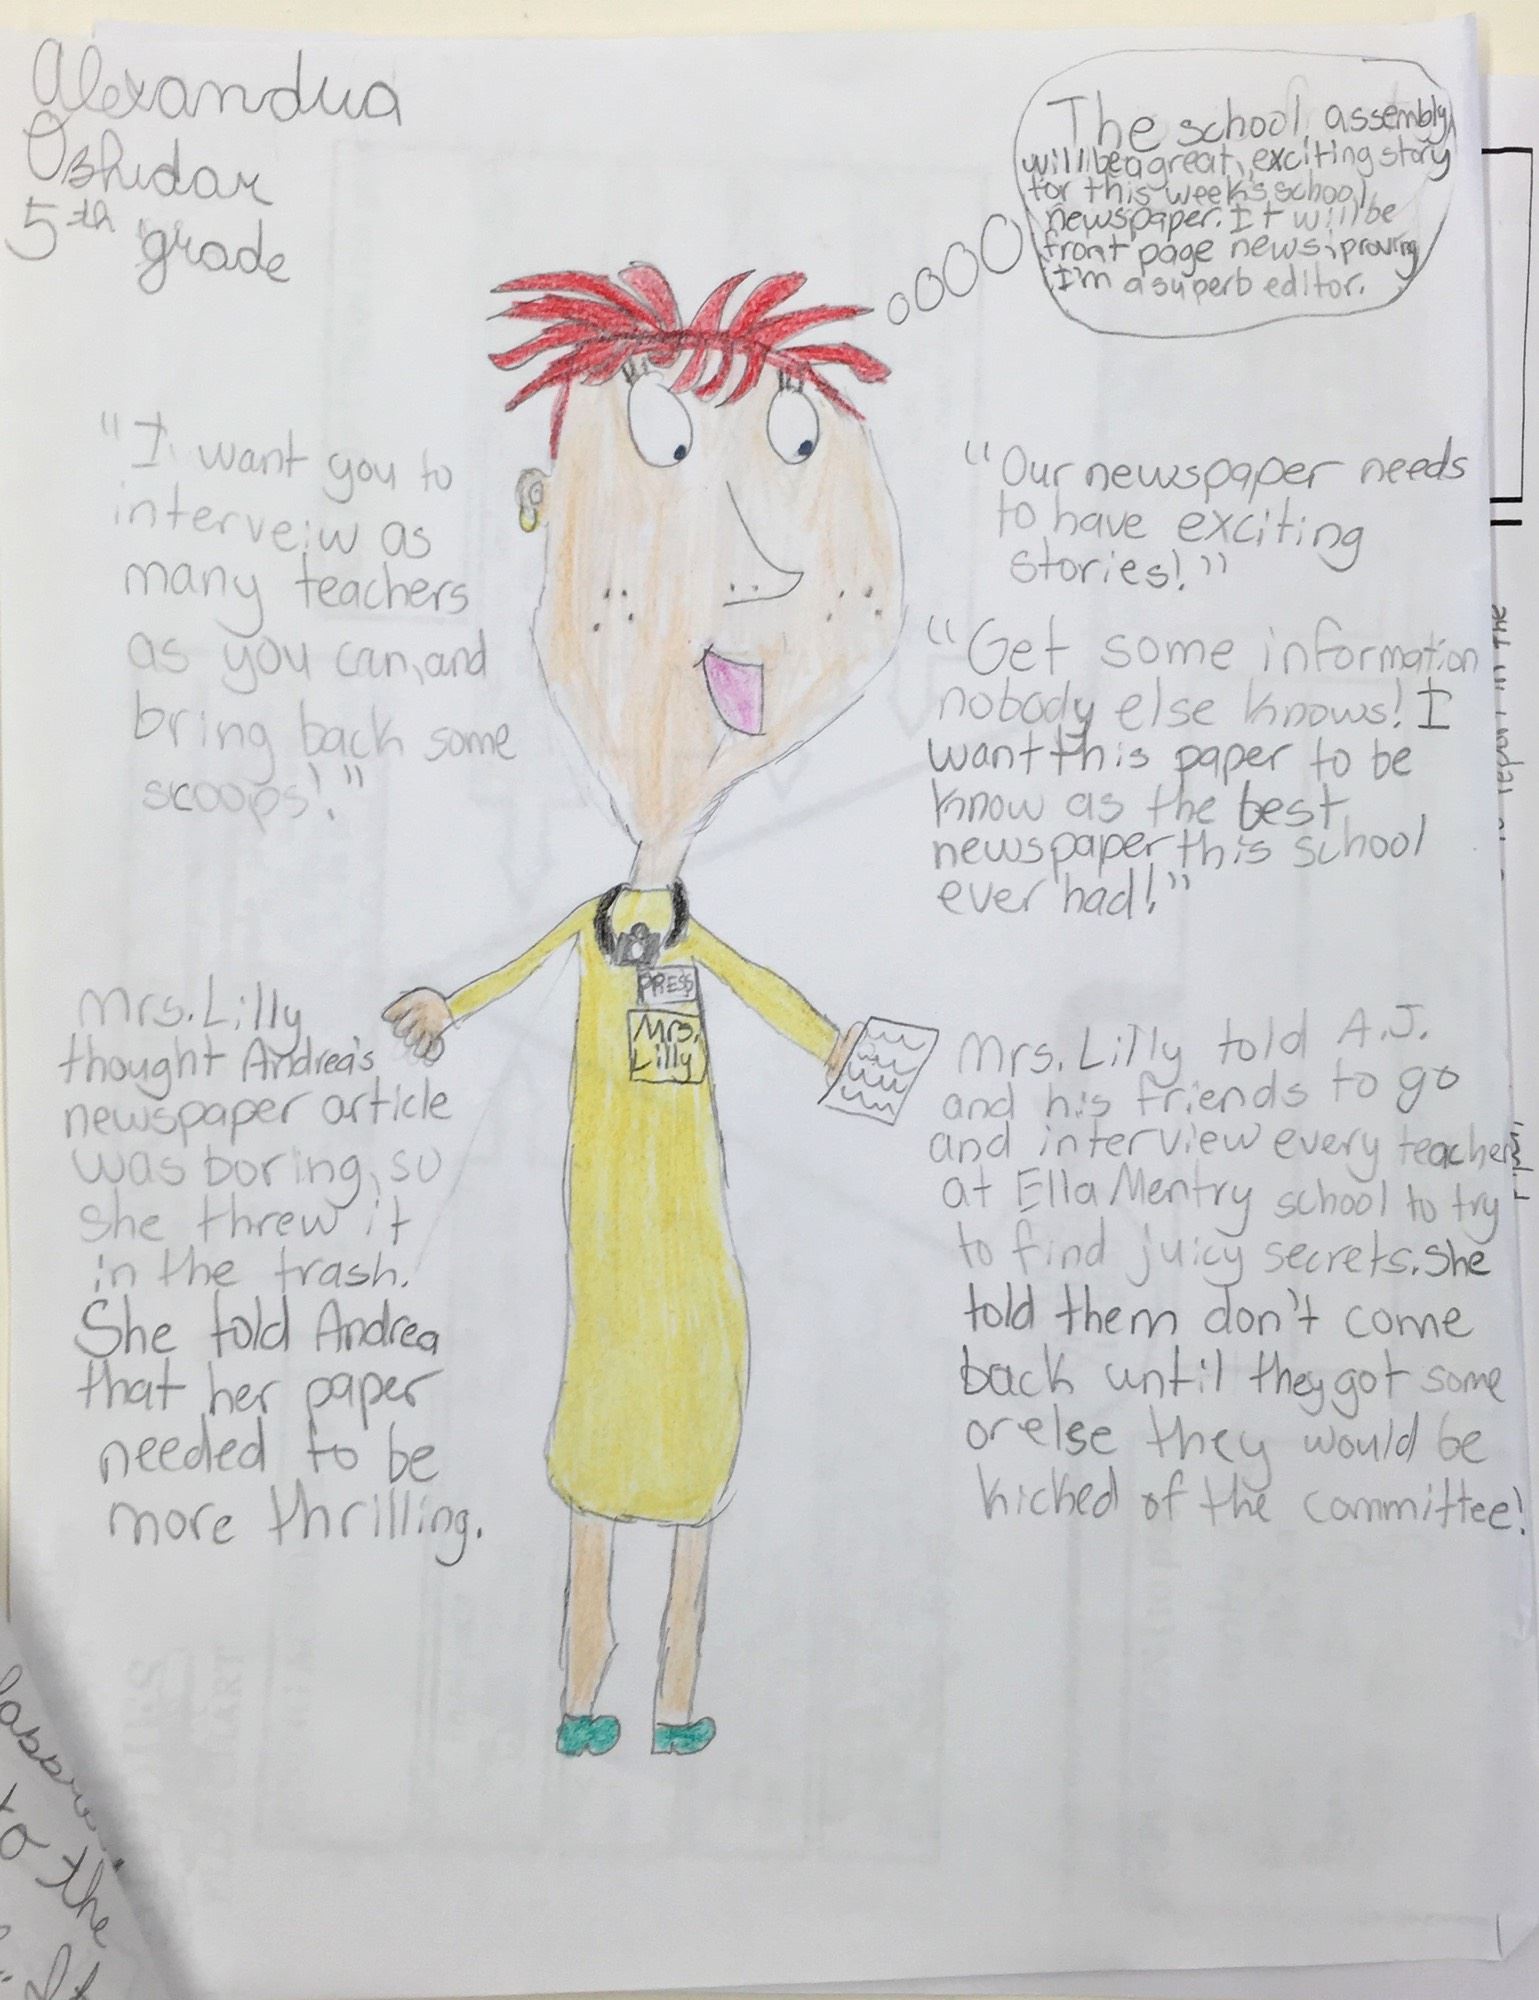 Alexandra
Oshidar
5th grade
The school assembly
will be a great, exciting story
for this week's school
newspaper. It will be
front page news, proving
I'm a superb editor.
"I want you to
interveiw as
many teachers
as you can, and
bring back some
scoops!"
"Our newspaper needs
to have exciting
stories!"
"Get some information
nobody else knows! I
want this paper to be
know as the best
newspaper this school
ever had!"
PRESS
Mrs.
Lilly
Mrs. Lilly
thought Andrea's
newspaper article
was boring, so
she threw it
in the trash.
She told Andrea
that her paper
needed to be
more thrilling.
Mrs. Lilly told A.J.
and his friends to go
and interview every teacher
at Ella Mentry school to try
to find juicy secrets. She
told them don't come
back until they got some
or else they would be
kicked of the committee!
the
to the